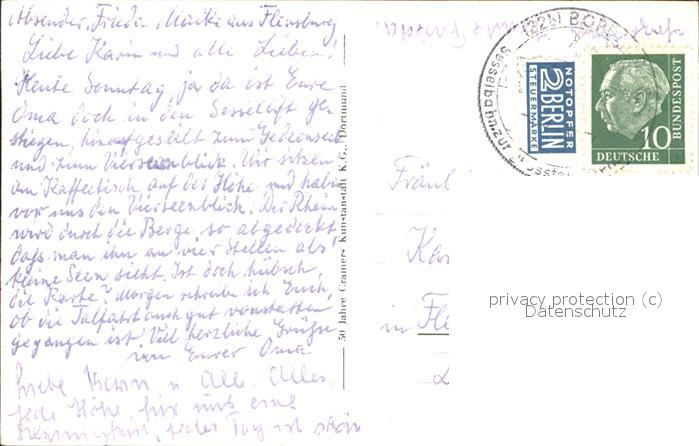 Absender, Frieda Maiki aus Flensburg
Liebe Karin und alle Lieben!
Heute Sonntag, ja da ist Eure
Oma doch in den Sessellift ge-
stiegen, hinaufgeseilt zum Gedeonseck
und zum Vierseenblick. Wir sitzen
am Kaffeetisch auf der Höhe und haben
vor uns den Vierseenblick. Der Rhein
wird durch die Berge so abgedeckt
dass man ihn an vier Stellen als
kleine Seen sieht. Ist doch hübsch,
die Karte? Morgen schreibe ich Euch,
ob die Talfahrt auch gut vonstatten
gegangen ist! Viel herzliche Grüsse
von Eurer Oma
Liebe Karin u alle.
jede Höhe, für uns eine
jeder Tag ist schön
50 Jahre Cramers Kunstanstalt K.G., Dortmund
(22b) BOPP
Sesselbahn
NOTOPFER
2 BERLIN
STEUERMARKE
10
DEUTSCHE
BUNDESPOST
Fräul
Kar
in Fle
privacy protection (c)
Datenschutz